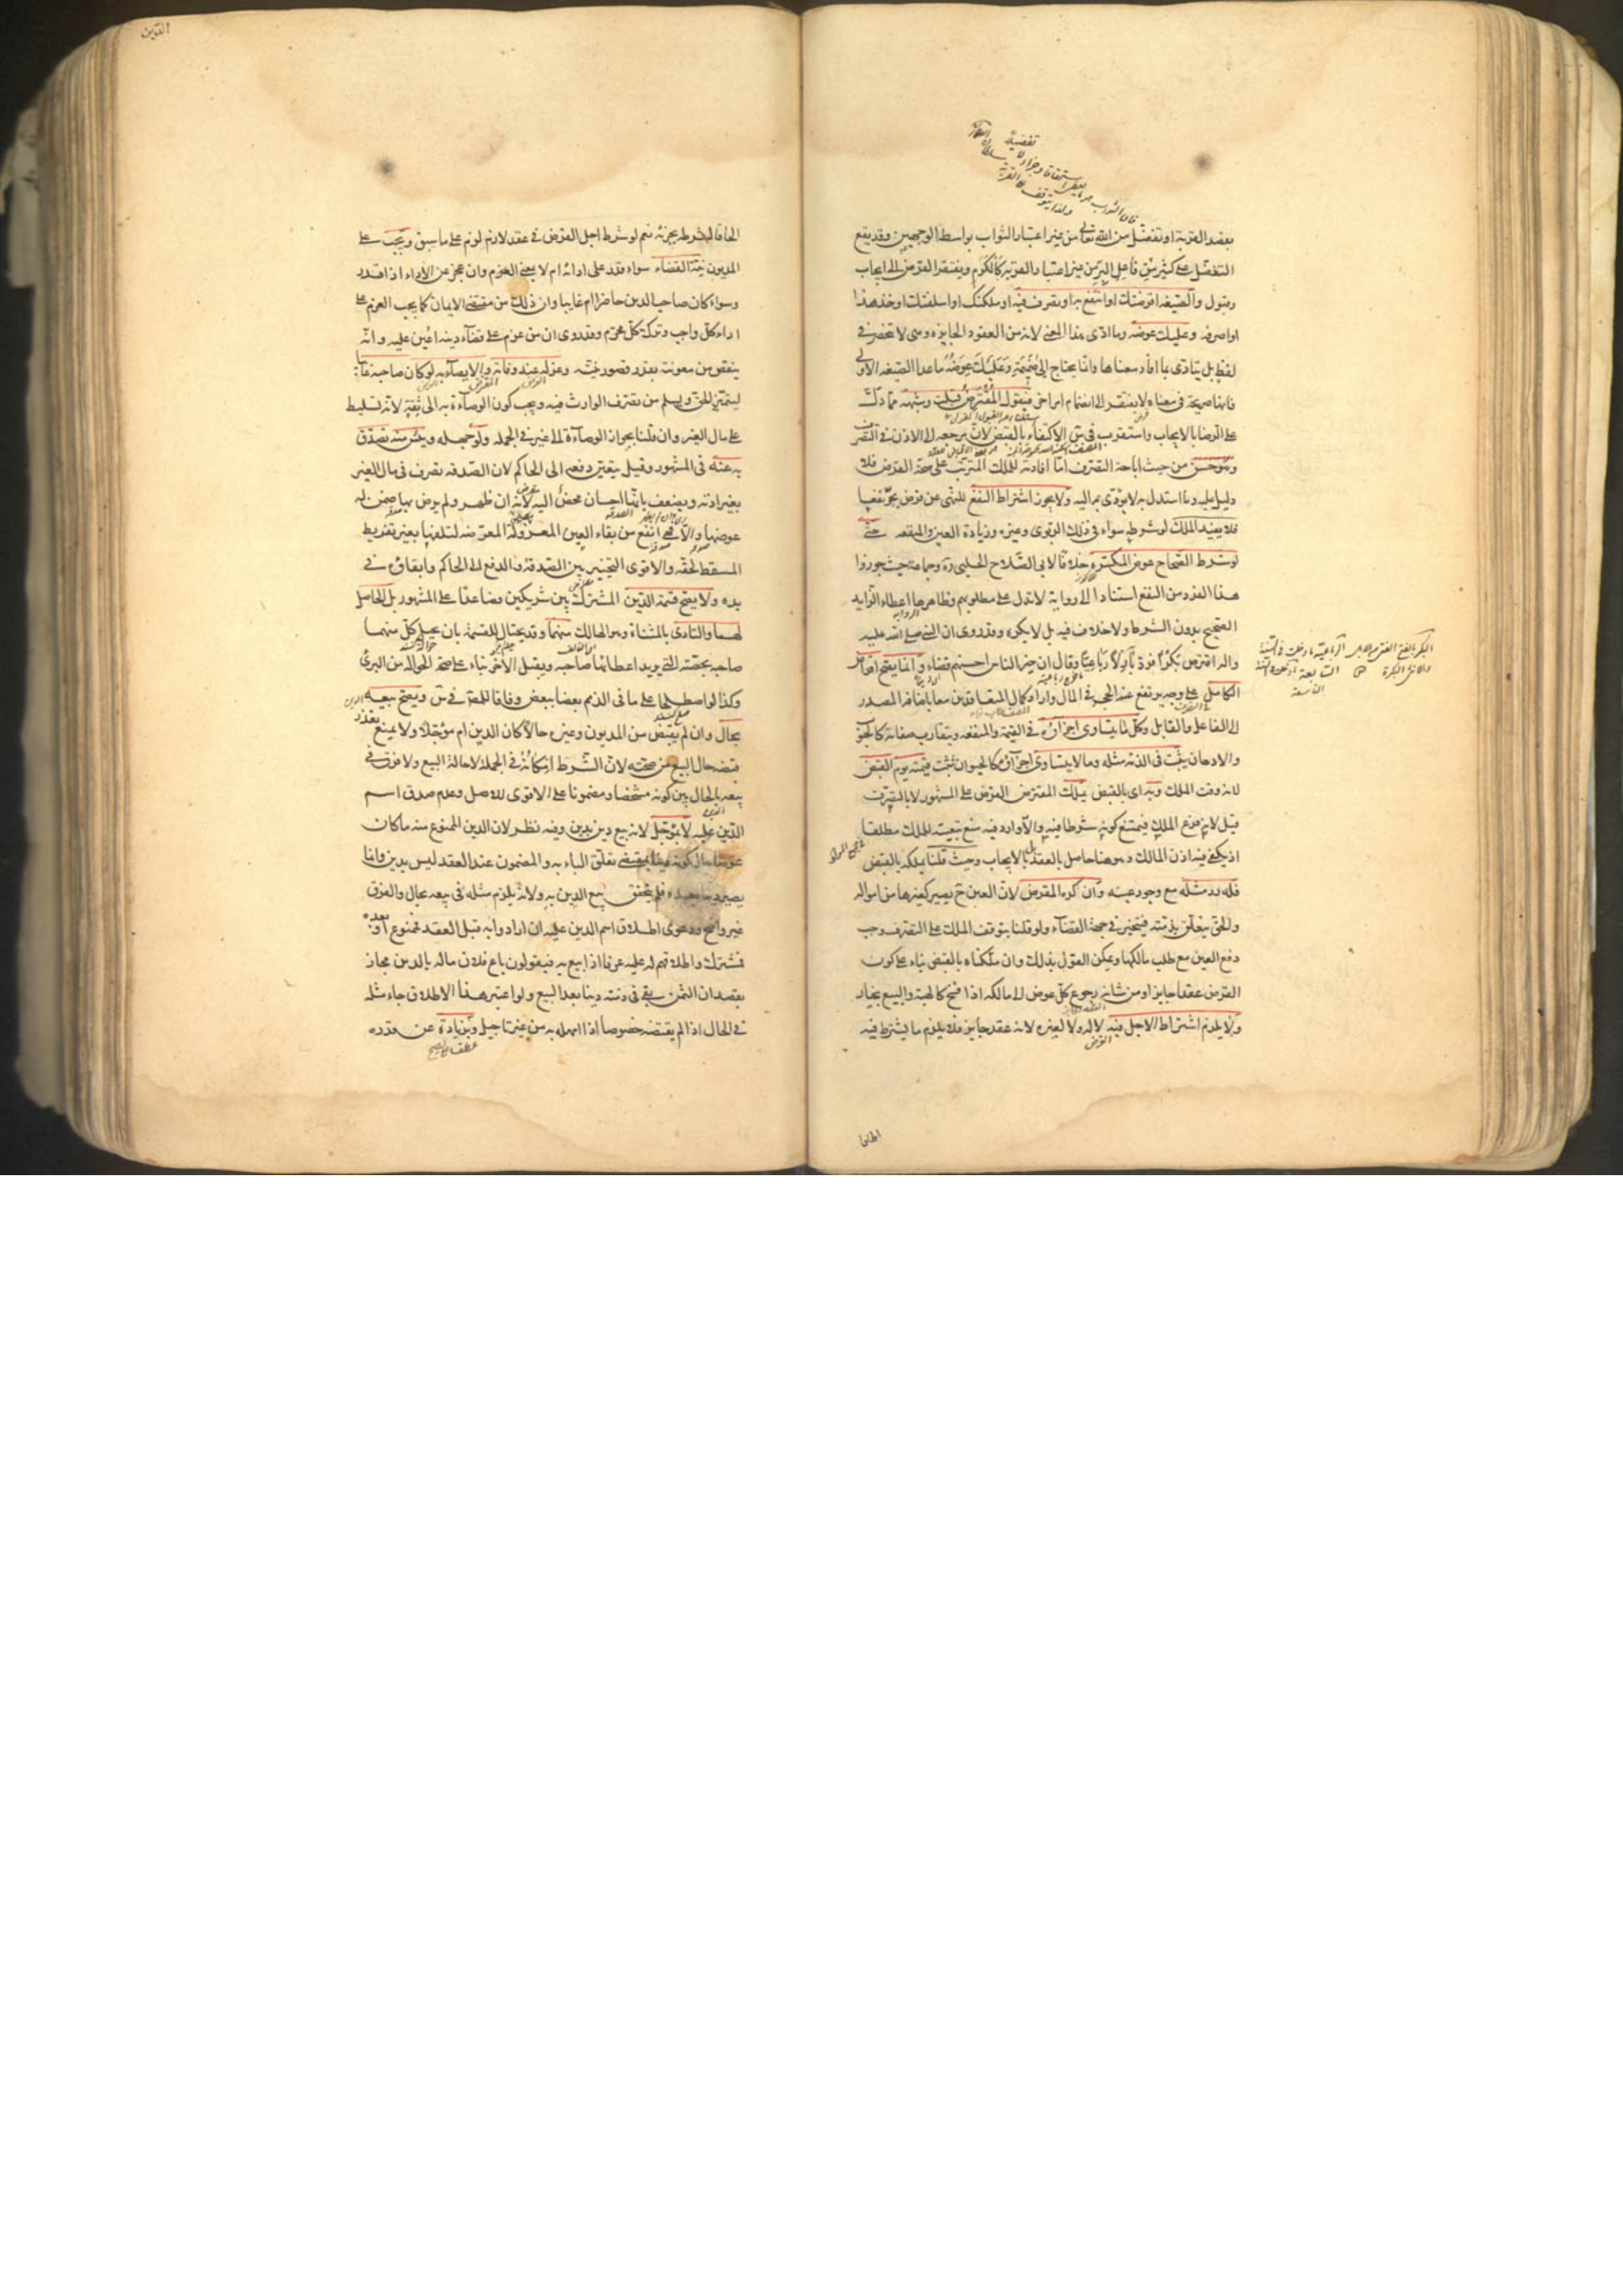 بقصد القربة او تفضل من الله تعالى من غير اعتبار الثواب بواسطة الوجهين وقد يقع
التفضل على كثير من فاعل البر من غير اعتبار القربة كالكرم ويفتقر القرض الى ايجاب
وقبول والصيغة اقرضتك او انتفع به او تصرف فيه او ملكتك او اسلفتك او خذ هذا
او اصرفه وعليك عوضه وما ادى هذا المعنى لانه من العقود الجايزه وهى لا تنحصر فى
لفظ بل يتأدى بما افاد معناها وانما يحتاج الى ضميمة وعليك عوضه ما عدا الصيغه الاولى
فانها صريحة فى معناه لا يفتقر الى انضمام امر اخر فيقول المقترض قبلت وشبهه مما دل
على الرضا بالايجاب واستقرب فى س الاكتفاء بالقبض لان مرجعه الى الاذن فى التصرف
وهو حسن من حيث اباحة التصرف اما افادته للملك المترتب على صحة القرض فلا
دليل عليه وما استدل به لا يؤدى اليه ولا يجوز اشتراط النفع للنهى عن قرض يجر نفعا
فلا يفيد الملك لو شرطه سواء فى ذلك الربوى وغيره وزيادة العين والمنفعه حتى
لو شرط الصحاح عوض المكسره خلافا لابى الصلاح الحلبى ره وجماعة حيث جوزوا
هذا الفرد من النفع استنادا الى رواية لا تدل على مطلوبهم وظاهرها اعطاء الزايد
الصحيح بدون الشرط ولا خلاف فيه بل لا يكره وقد روى ان النبى صلى الله عليه
واله اقترض بكرا فرد بازلا رباعيا وقال ان خير الناس احسنهم قضاء وانما يصح اقراض
الكامل على وجه يرتفع عنه الحجر فى المال واراد كمال المتعاقدين معا باضافة المصدر
الى الفاعل والقابل وكل ما يتساوى اجزاؤه فى القيمة والمنفعه وتتقارب صفاته كالحبوب
والادهان يثبت فى الذمه مثله وما لا يتساوى اجزاؤه كالحيوان تثبت قيمته يوم القبض
لانه وقت الملك وبه اى بالقبض يملك المقترض القرض على المشهور لا بالتصرف
قيل لانه فرع الملك فيمتنع كونه شرطا فيه والا دار وفيه منع تبعيته للملك مطلقا
اذ يكفى فيه اذن المالك وهو هنا حاصل بالعقد بل بالايجاب وحيث قلنا يملكه بالقبض
فله رد مثله مع وجود عينه وان كره المقرض لان العين ح يصير كغيرها من امواله
والحق يتعلق بذمته فيتخير فى جهة القضاء ولو قلنا بتوقف الملك على التصرف وجب
دفع العين مع طلب مالكها ويمكن القول بذلك وان ملكناه بالقبض بناء على كون
القرض عقدا جايزا ومن شانه رجوع كل عوض الى مالكه اذا فسخ كالهبة والبيع بخيار
ولا يلزم اشتراط الاجل فيه لا له ولا لغيره لانه عقد جايز فلا يلزم ما يشترط فيه
الحاقا لشرطه بجزئه نعم لو شرط اجل القرض فى عقد لازم لزم على ما سبق ويجب على
المديون نية القضاء سواء قدر على ادائه ام لا بمعنى العزم وان عجز عن الاداء اذا قدر
وسواء كان صاحب الدين حاضرا ام غايبا وان ذلك من مقتضى الايمان كما يجب العزم على
اداء كل واجب وترك كل محرم وقد روى ان من عزم على قضاء دينه اعين عليه وانه
ينقص من معونته بقدر قصور نيته وعزله عند وفاته والايصاء به لو كان صاحبه غايبا
ليتميز الحق ويسلم من تصرف الوارث فيه ويجب كون الوصاءة به الى ثقة لانه تسليط
على مال الغير وان قلنا بجواز الوصاءة الى غيره فى الجمله ولو جهله ويئس منه تصدق
به عنه فى المشهور وقيل يتعين دفعه الى الحاكم لان الصدقه تصرف فى مال الغير
بغير اذنه ويضعف بانها احسان محض اليه لانه ان ظهر ولم يرض بها ضمن له
عوضها والا فهى انفع من بقاء العين المعزولة المعرضه لتلفها بغير تفريط
المسقط لحقه والاقوى التخيير بين الصدقة والدفع الى الحاكم وابقاؤه فى
يده ولا يصح قسمة الدين المشترك بين شريكين فصاعدا على المشهور بل الحاصل
لهما والتاوى بالمثناة وهو الهالك منهما وقد يحتال للقسمة بان يحيل كل منهما
صاحبه بحصته التى يريد اعطائها صاحبه ويقبل الاخر بناء على صحة الحواله من البرئ
وكذا لو اصطلحا على ما فى الذمم بعضا ببعض وفاقا للمص فى س ويصح بيعه
بحال وان لم يقبض من المديون وغيره حالا كان الدين ام مؤجلا ولا يمنع تعذر
قبضه حال البيع من صحته لان الشرط امكانه فى الجملة لا حالة البيع ولا فرق فى
بيعه بالحال بين كونه مشخصا ومضمونا على الاقوى للاصل وعدم صدق اسم
الدين عليه لا بمؤجل لانه بيع دين بدين وفيه نظر لان الدين الممنوع منه ما كان
عوضا حال كونه دينا بمقتضى تعلق الباء به والمضمون عند العقد ليس بدين وانما
يصير دينا بعده فلم يتحقق بيع الدين به ولانه يلزم مثله فى بيعه بحال والفرق
غير واضح ودعوى اطلاق اسم الدين عليه ان ارادوا به قبل العقد فممنوع او بعده
فمشترك واطلاقهم له عليه عرفا اذا بيع به فيقولون باع فلان ماله بالدين مجاز
بقصد ان الثمن بقى فى ذمته دينا بعد البيع ولو اعتبر هذا الاطلاق جاء مثله
فى الحال اذا لم يقبضه خصوصا اذا امهله به من غير تاجيل وبزيادة عن قدره